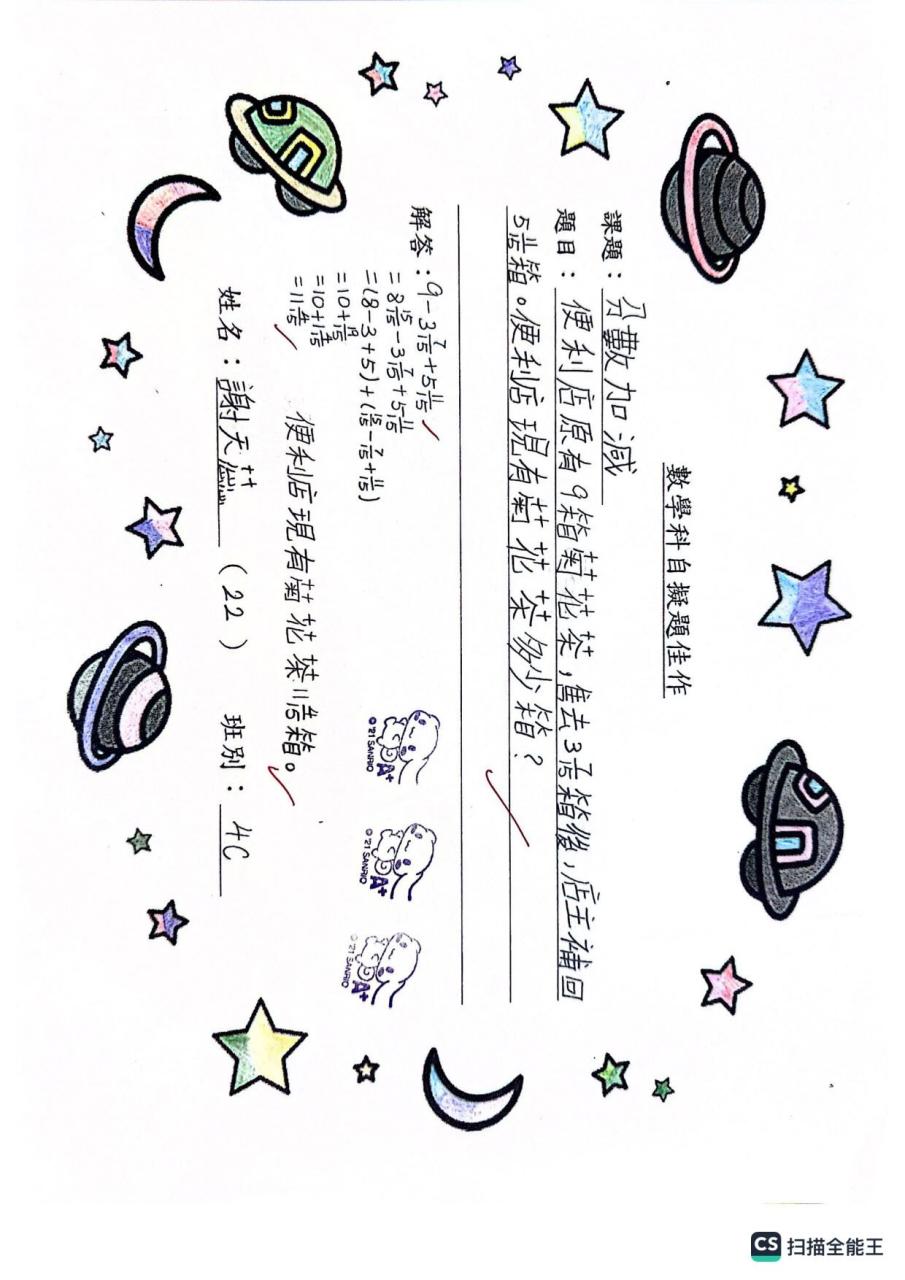 數學科自擬題佳作
課題：分數加減
題目：便利店原有9箱菊花茶，售去3 7/15箱後，店主補回
5 11/15箱。便利店現有菊花茶多少箱？
解答：9-3 7/15+5 11/15
=8 15/15-3 7/15+5 11/15
=(8-3+5)+(15/15-7/15+11/15)
=10+19/15
=10+1 4/15
=11 4/15
便利店現有菊花茶11 4/15箱。
© '21 SANRIO A+
© '21 SANRIO A+
© '21 SANRIO A+
姓名：謝天 (22) 班別：4C
CS 扫描全能王